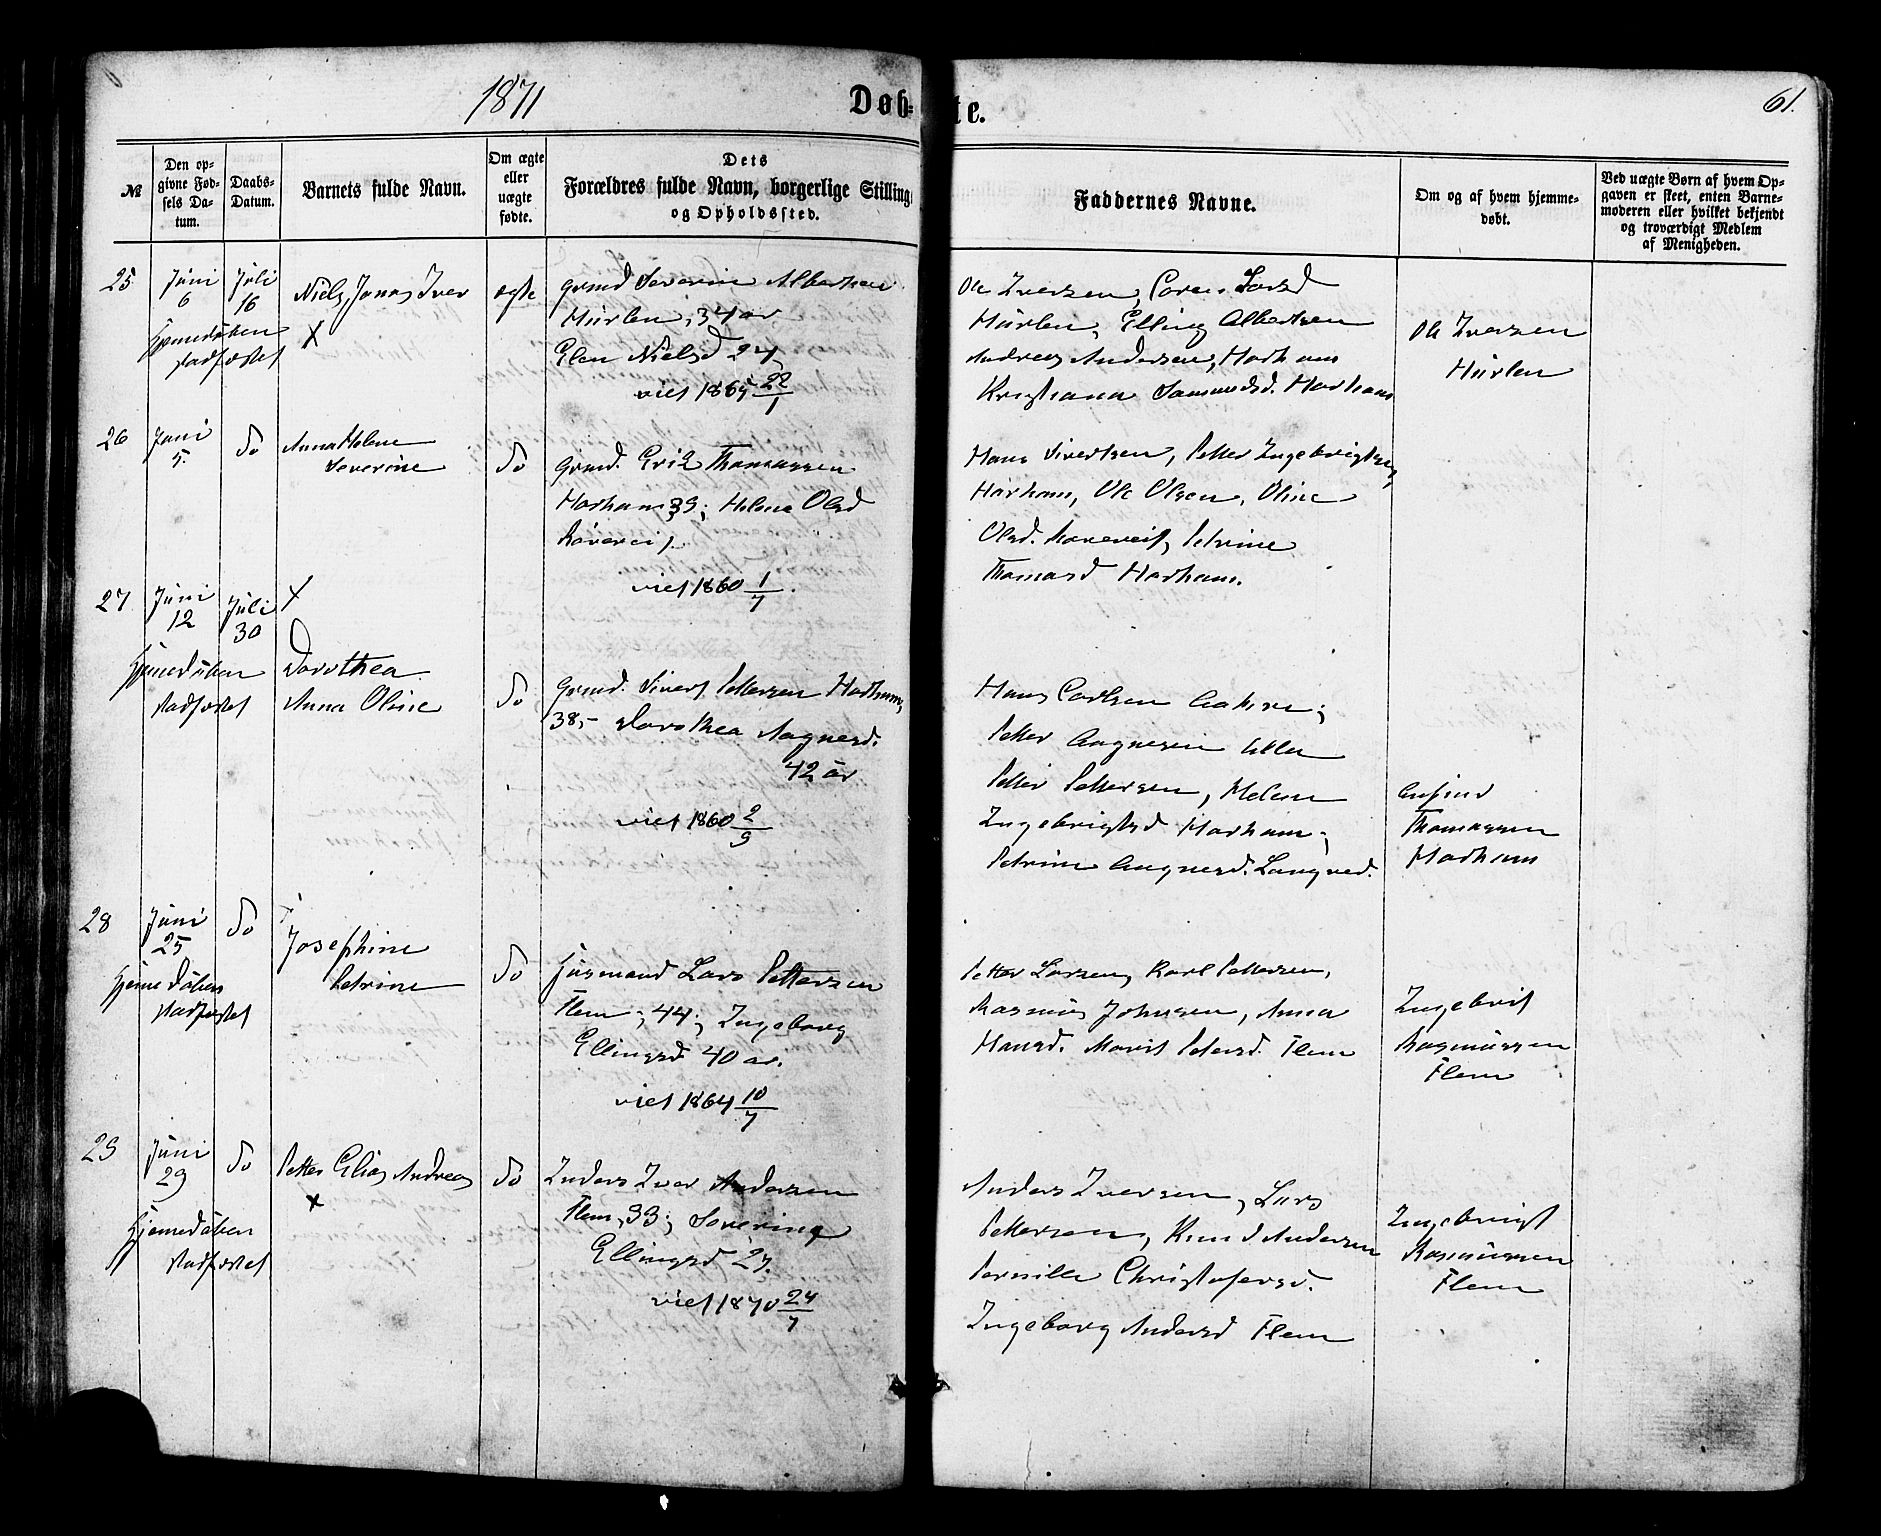 1871
Døb=te.
61.
№
Den op-
givne Fød-
sels Da-
tum.
Daabs-
Datum.
Barnets fulde Navn.
Om ægte
eller
uægte
fødte.
Dets
Forældres fulde Navn, borgerlige Stilling
og Opholdssted.
Faddernes Navne.
Om og af hvem hjemme-
døbt.
Ved uægte Børn af hvem Op-
gaven er skeet, enten Barne-
moderen eller hvilket bekjendt
og troværdigt Medlem
af Menigheden.
25
Juni
6
Juli
16
Hjemedåben
stadfæstet
Niels Jonas Iver
X
ægte
Grmd Severin Albertsen
Hurlen, 34 år
Elen Nielsd 27
viet 1865 22/1
Ole Iversen, Larsd
Hurlen, Elling Albertsen
Andreas Andersen, Harham
Kristiana Samundsd. Harham
Ole Iversen
Hurlen
26
Juni
5.
do
Anna Helene
Severine
do
Grmd. Erik Thomassen
Harham 39; Helene Olsd
Røvereit.
viet 1860 1/7.
Hans Sivertsen, Petter Ingebrigtsen,
Harham, Ole Olsen, Oline
Olsd. Røvereit, Petrine
Thomasd Harham.
27
Juni
12
Juli
30
X
Hjemedåben
stadfæstet
Dorothea
Anna Oline
do
Grmd. Sivert Pettersen Harham,
38,- Dorothea Aagnesd.
42 år
viet 1860 2/9
Hans Carlsen
Petter Aagnesen Ulla
Petter Pettersen, Helene
Ingebrigtsd Harham;
Petrine Aagnesd. Longved.
Thomassen
Harham
28
Juni
25
do
Hjemedåben
stadfæstet
Josephine
Petrine
do
Husmand Lars Pettersen
Flem, 44; Ingeborg
Ellingsd. 40 år.
viet 1864 10/7
Petter Larsen, Karl Pettersen,
Rasmus Johnsen, Anna
Hansd. Marit Petersd. Flem
Ingebrit
Rasmussen
Flem
29
Juni
29
do
Hjemedåben
stadfæstet
Petter Elias Andreas
X
do
Inders Iver Andersen
Flem, 33; Severine
Ellingsd 27.
viet 1870 24/7
Anders Iversen, Lars
Pettersen, Knud Andersen
Pernille Christofersd.
Ingeborg Andersd Flem
Ingebrigt
Rasmussen
Flem